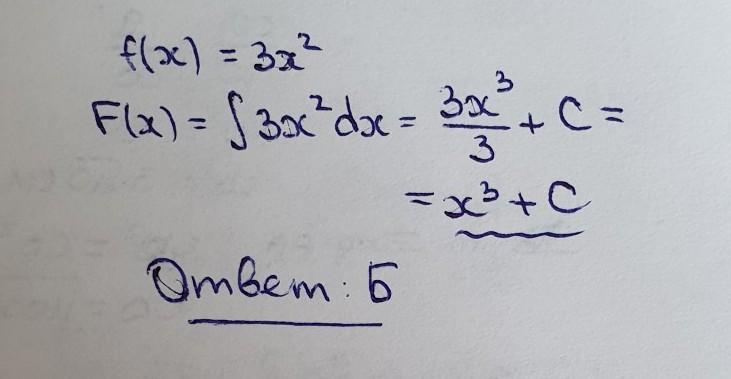 f(x) = 3x²
F(x) = ∫ 3x² dx = 3x³/3 + C =
= x³ + C
Ответ: Б